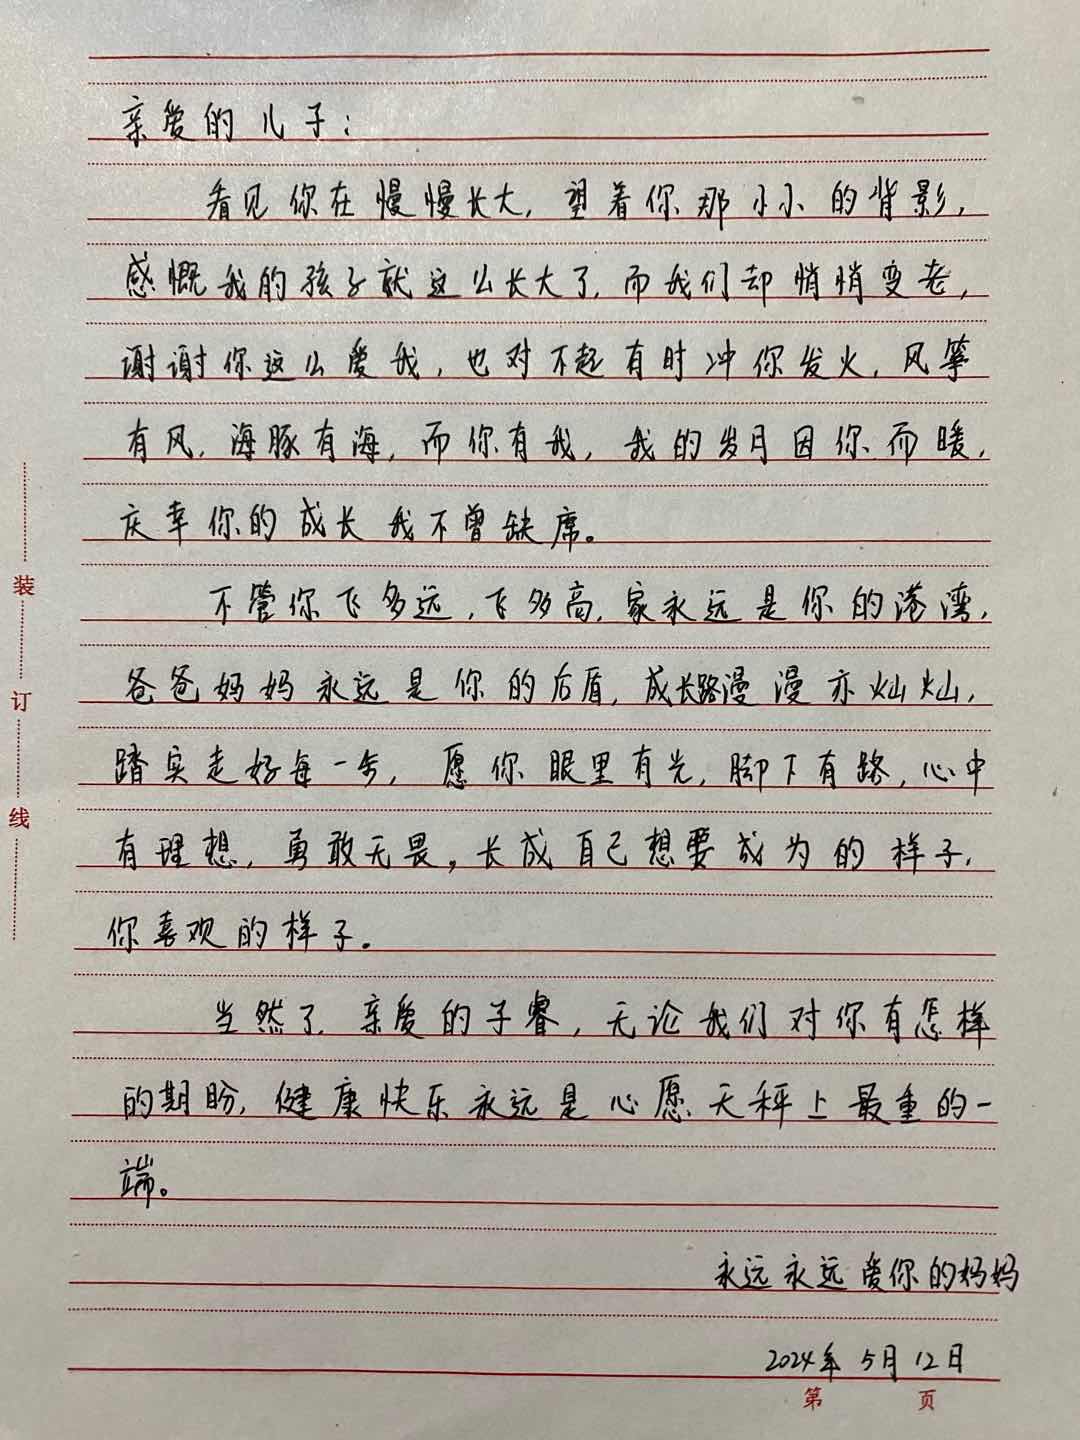 亲爱的儿子：
看见你在慢慢长大，望着你那小小的背影，
感慨我的孩子就这么长大了，而我们却悄悄变老，
谢谢你这么爱我，也对不起有时冲你发火，风筝
有风，海豚有海，而你有我，我的岁月因你而暖，
庆幸你的成长我不曾缺席。
不管你飞多远，飞多高，家永远是你的港湾，
爸爸妈妈永远是你的后盾，成长路漫漫亦灿灿，
踏实走好每一步，愿你眼里有光，脚下有路，心中
有理想，勇敢无畏，长成自己想要成为的样子，
你喜欢的样子。
当然了，亲爱的子睿，无论我们对你有怎样
的期盼，健康快乐永远是心愿天秤上最重的一
端。
永远永远爱你的妈妈
2024年5月12日
第 页
装
订
线